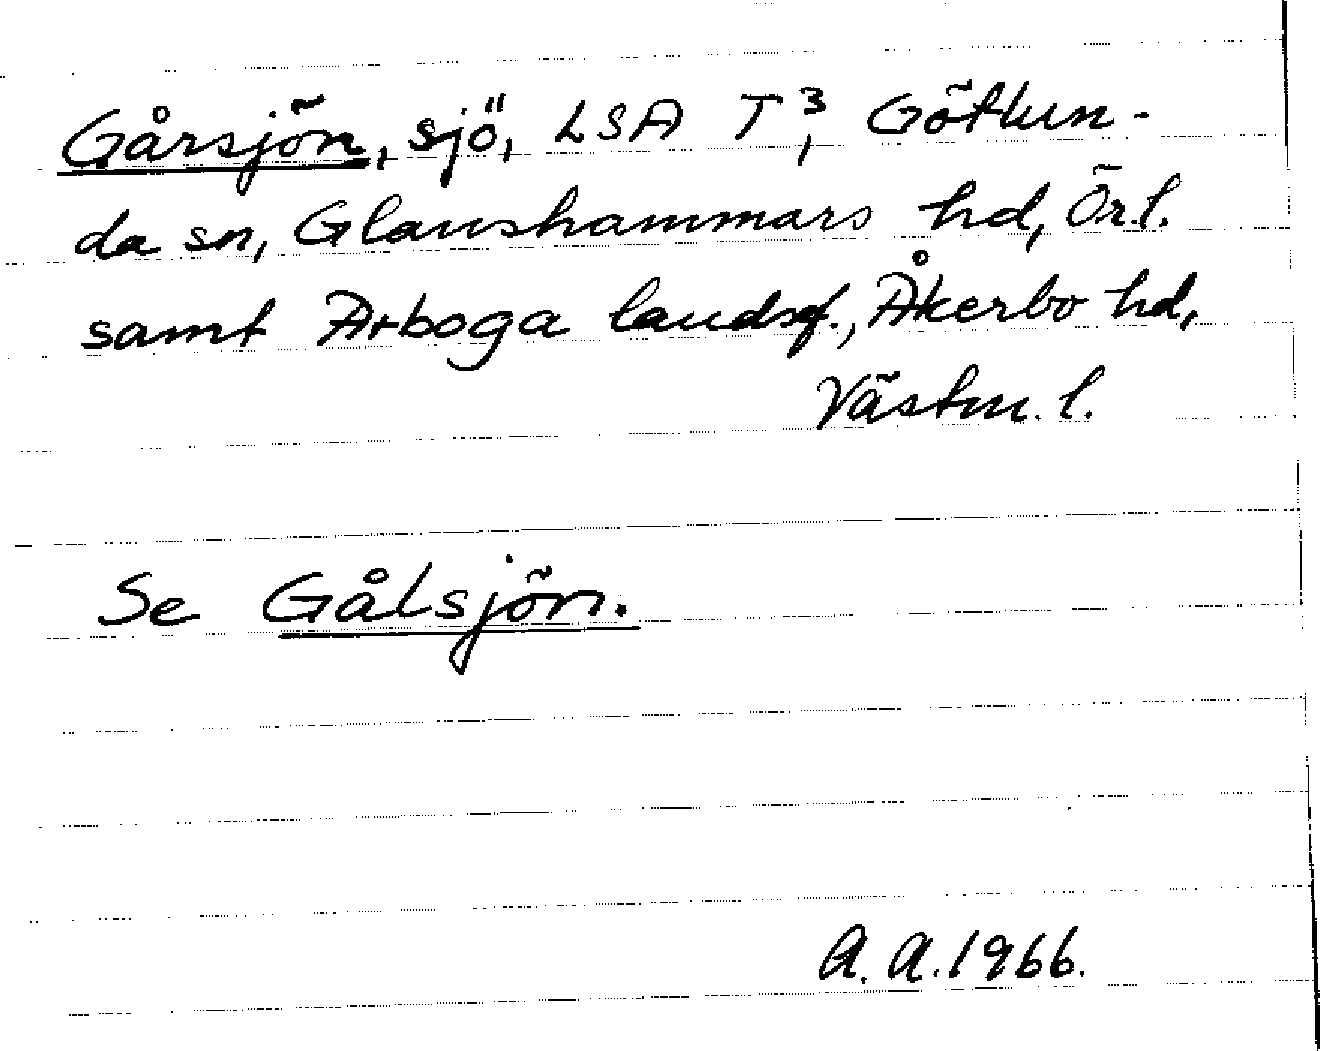 Gårsjön, sjö, LSA T³, Götlun-
da sn, Glanshammars hd, Ör.l.
samt Arboga landsf., Åkerbo hd,
Västm. l.
Se Gålsjön.
A. A. 1966.